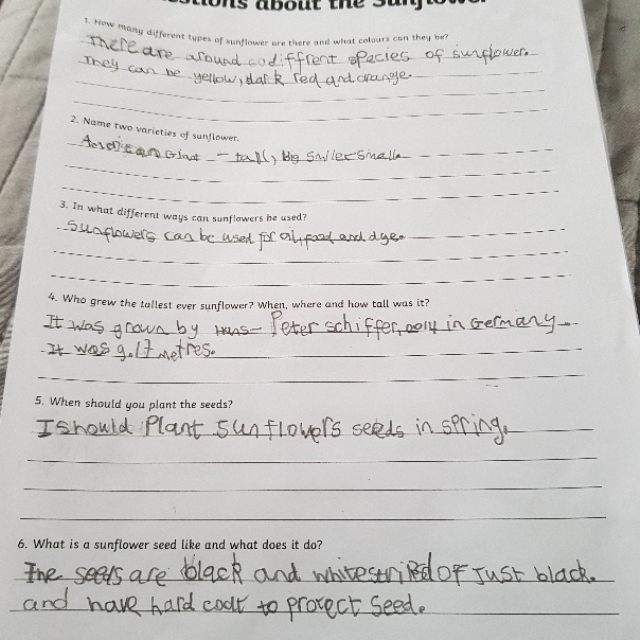 about the Sunflower
1. How many different types of sunflower are there and what colours can they be?
There are around diffrent species of sunflower.
They can be yellow, dark red and orange.
2. Name two varieties of sunflower.
Giant - tall, big smiles small
3. In what different ways can sunflowers be used?
Sunflowers can be used for oil, food and dye.
4. Who grew the tallest ever sunflower? When, where and how tall was it?
It was grown by Hans- Peter schiffer, in Germany.
It was 9.17 metres.
5. When should you plant the seeds?
I should Plant sunflowers seeds in spring.
6. What is a sunflower seed like and what does it do?
The seeds are black and white Just black.
and have hard coat to protect seed.